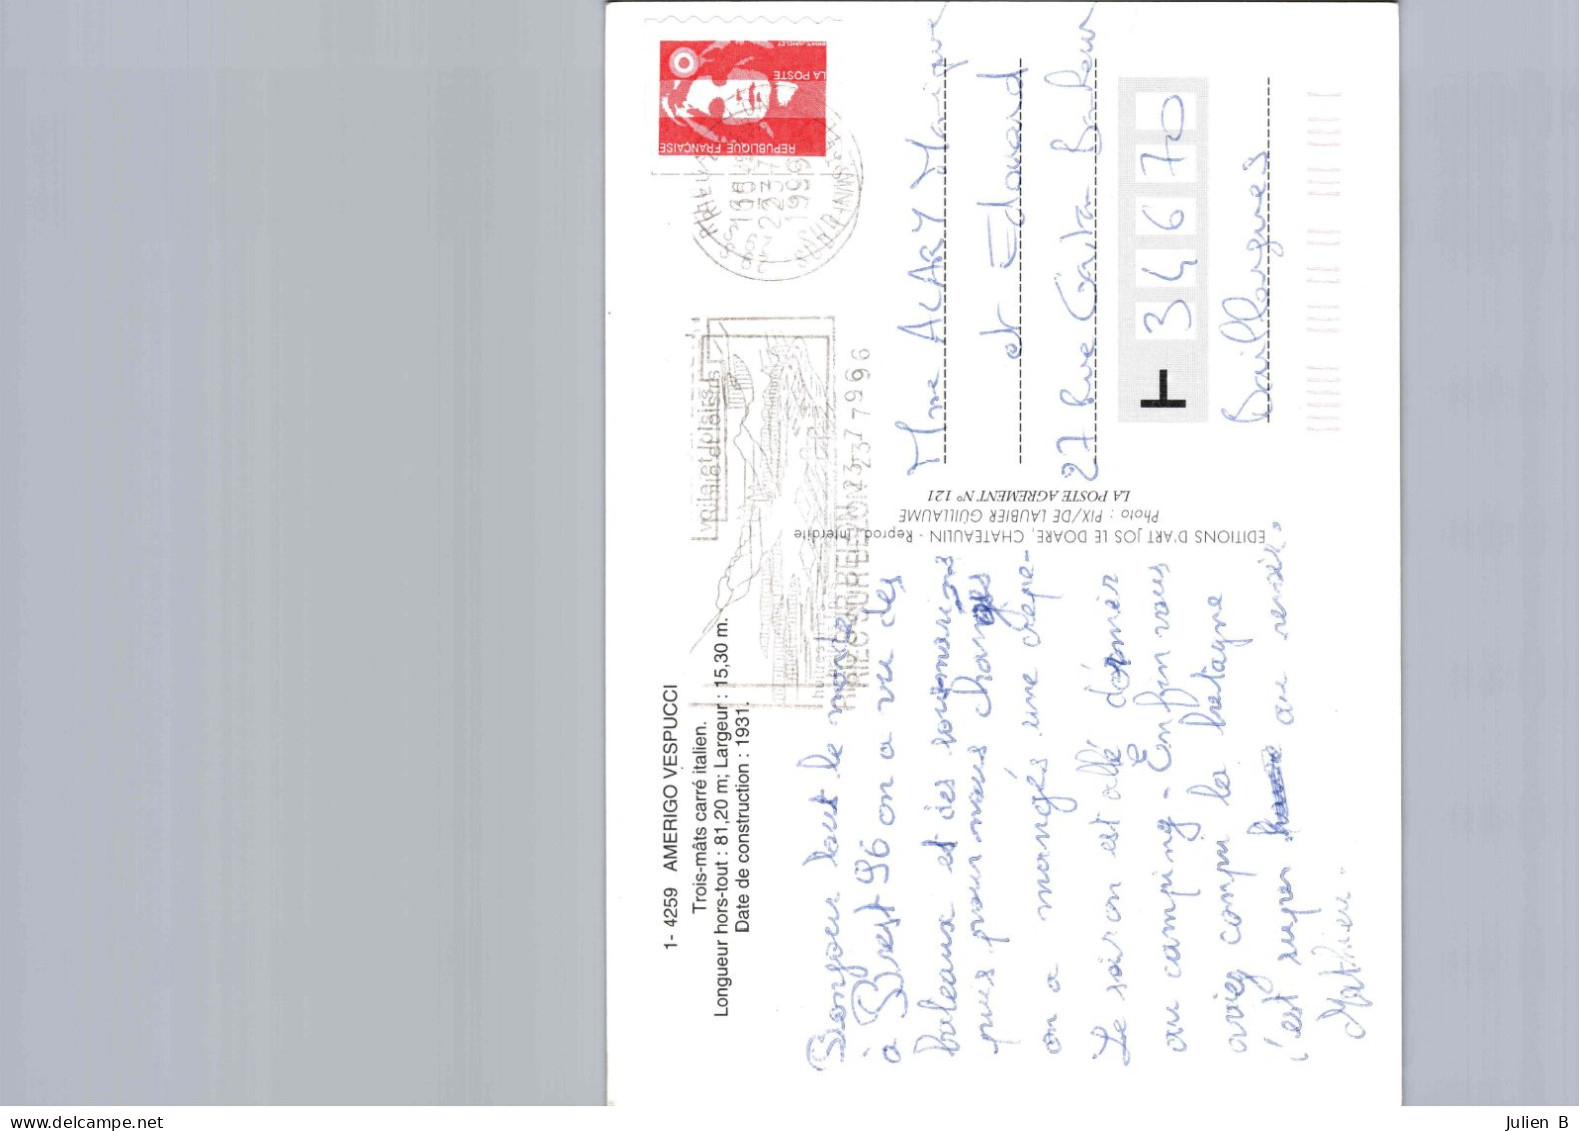 1- 4259 AMERIGO VESPUCCI
Trois-mâts carré italien.
Longueur hors-tout : 81,20 m; Largeur : 15,30 m.
Date de construction : 1931.
Bonjour tout le monde
à Brest 96 on a vu des
bateaux et des sousmarins
puis pour nous changés
on a mangés une crêpe-
Le soir on est allé dormir
au camping - Enfin vous
aviez compri la bretagne
c'est super au revoir.
Mathieu.
EDITIONS D'ART JOS LE DOARE, CHATEAULIN - Reprod. Interdite
Photo : PIX/DE LAUBIER GUILLAUME
LA POSTE AGREMENT N° 121
REPUBLIQUE FRANÇAISE
LA POSTE
1996
RIEC SUR BELON 23 7 96
Mme ALARY Monique
et Edouard
27 Rue Gaston
34670
Baillargues
Julien B